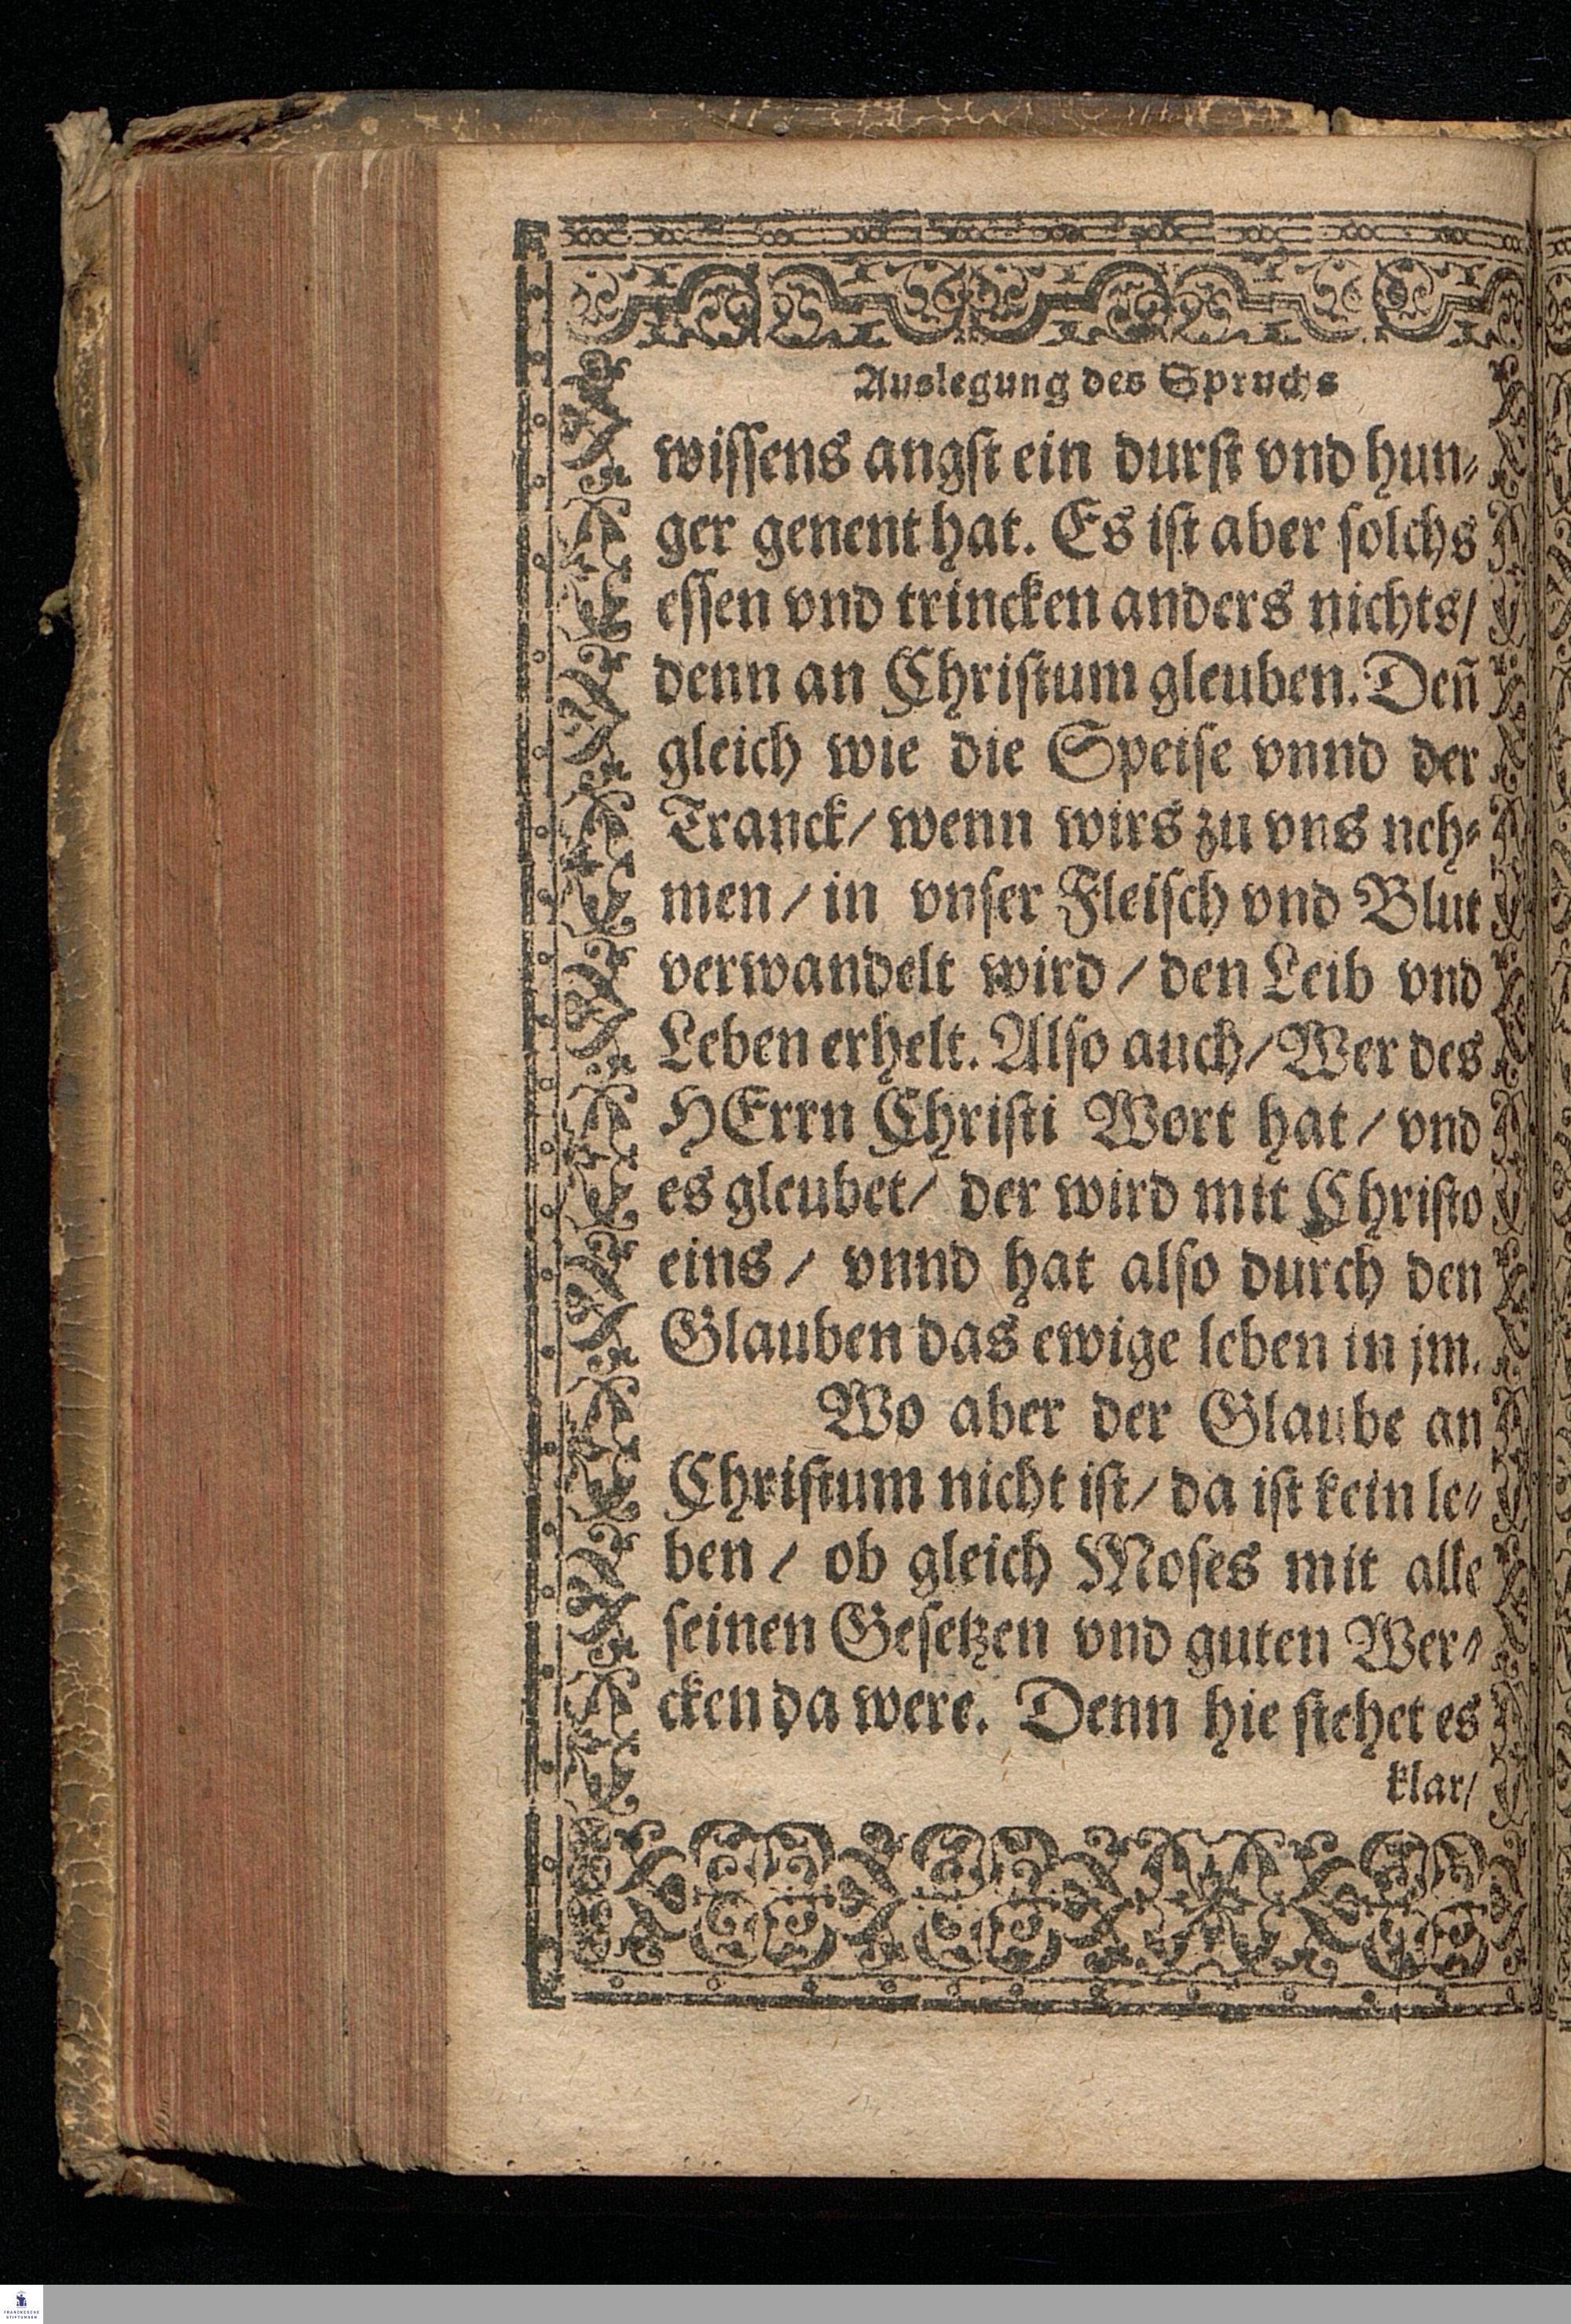 Auslegung des Spruchs
wissens angst ein durst vnd hun⸗
ger genent hat. Es ist aber solchs
essen vnd trincken anders nichts/
denn an Christum gleuben. Deñ
gleich wie die Speise vnnd der
Tranck/ wenn wirs zu vns neh⸗
men / in vnser Fleisch vnd Blut
verwandelt wird / den Leib vnd
Leben erhelt. Also auch/ Wer des
HErrn Christi Wort hat / vnd
es gleubet/ der wird mit Christo
eins / vnnd hat also durch den
Glauben das ewige leben in jm.
Wo aber der Glaube an
Christum nicht ist/ da ist kein le⸗
ben / ob gleich Moses mit alle
seinen Gesetzen vnd guten Wer⸗
cken da were. Denn hie stehet es
klar/
FRANCKESCHE
STIFTUNGEN